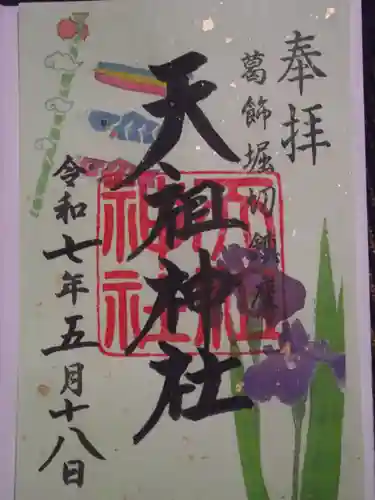 奉拝
葛飾堀切鎮座
天祖神社
令和七年五月十八日